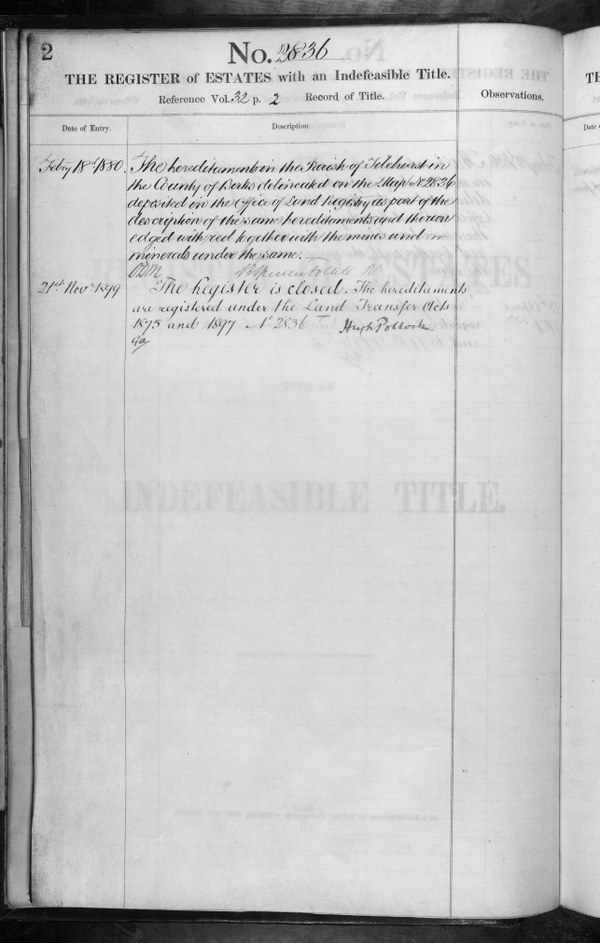 2
No. 2836
THE REGISTER of ESTATES with an Indefeasible Title.
Reference Vol. 32 p. 2 Record of Title.
Observations.
Date of Entry.
Description.
Feby 18th 1880. The hereditaments in the Parish of Tilehurst in
the County of Berks delineated on the Map No 2836
deposited in the Office of Land Registry as part of the
description of the same hereditaments and thereon
edged with red together with the mines and
minerals under the same.
21st Novr 1899
The Register is closed. The hereditaments
are registered under the Land Transfer Acts
1875 and 1897 No 2836
Hugh Pollock
TH
Date